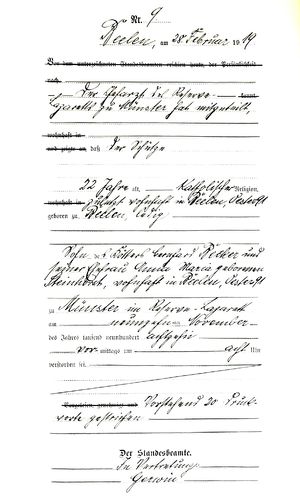 Nr. 9
Beelen, am 28 Februar 1919
Vor dem unterzeichneten Standesbeamten erschien heute, der Persönlichkeit
nach
Der Chefarzt des Reserve-
lazaretts zu Münster hat mitgeteilt,
wohnhaft in
und zeigte an, daß der Schütze
22 Jahre alt, katholischer Religion,
wohnhaft in zuletzt wohnhaft in Beelen,
geboren zu Beelen, ledig
Sohn des Kötters Bernhard und
seiner Ehefrau Anna Maria geborenen
Steinhorst, wohnhaft in Beelen,
zu Münster im Reserve-Lazarett
am neunzehn ten November
des Jahres tausend neunhundert achtzehn
vor mittags um acht Uhr
verstorben sei.
Vorstehend 20 Druck-
worte gestrichen
Der Standesbeamte.
In Vertretung